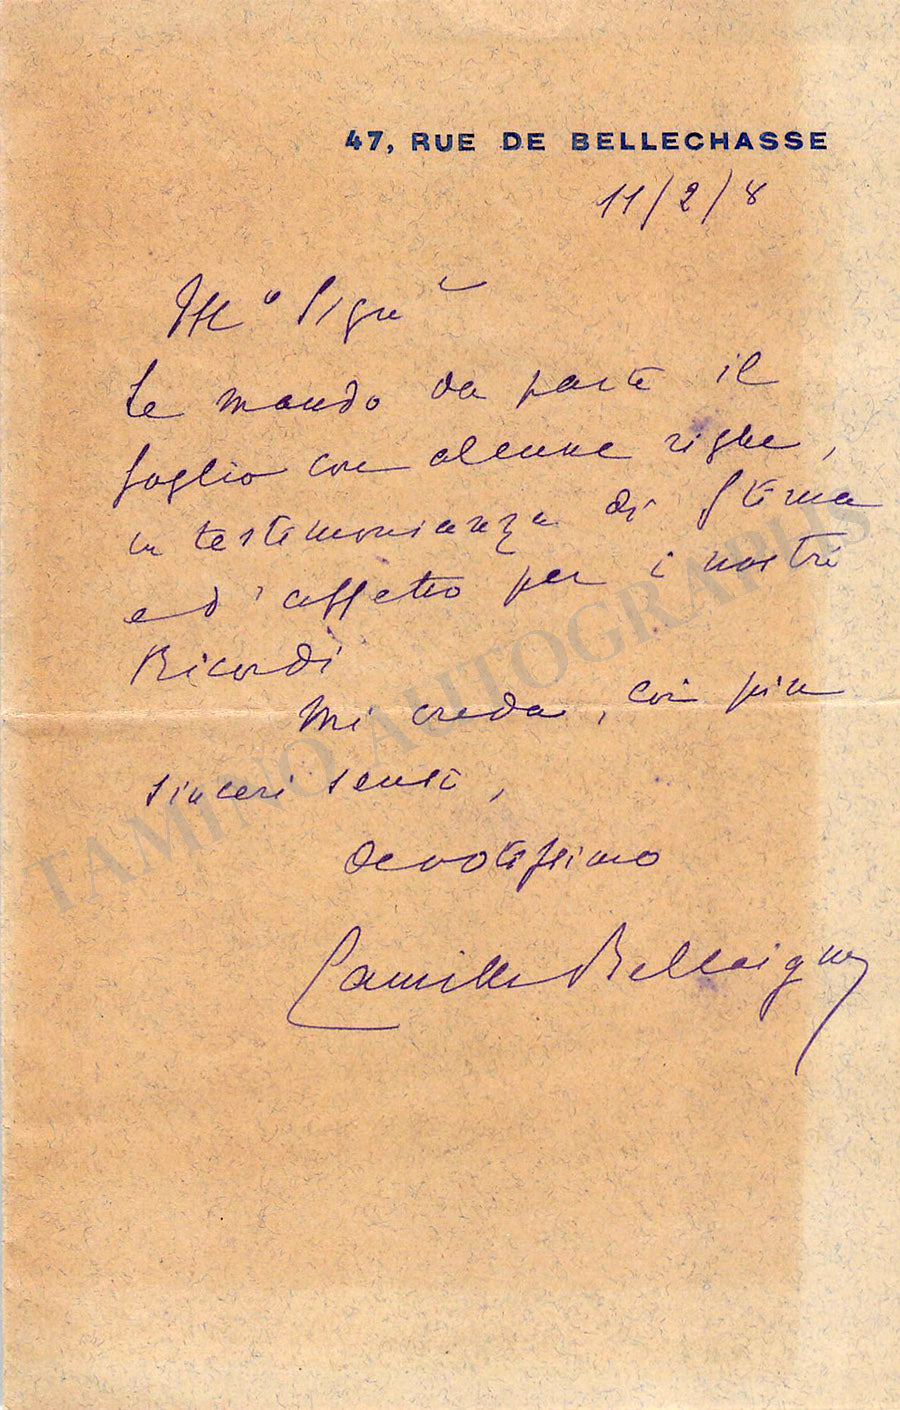 47, RUE DE BELLECHASSE
11/2/8
Ill.o Sigre
Le mando da parte il
foglio con alcune righe,
in testimonianza di stima
ed'affetto per i nostri
Ricordi
Mi creda, coi piu
sinceri sensi,
devotissimo
Camille Bellaigue
TAMINO AUTOGRAPHS